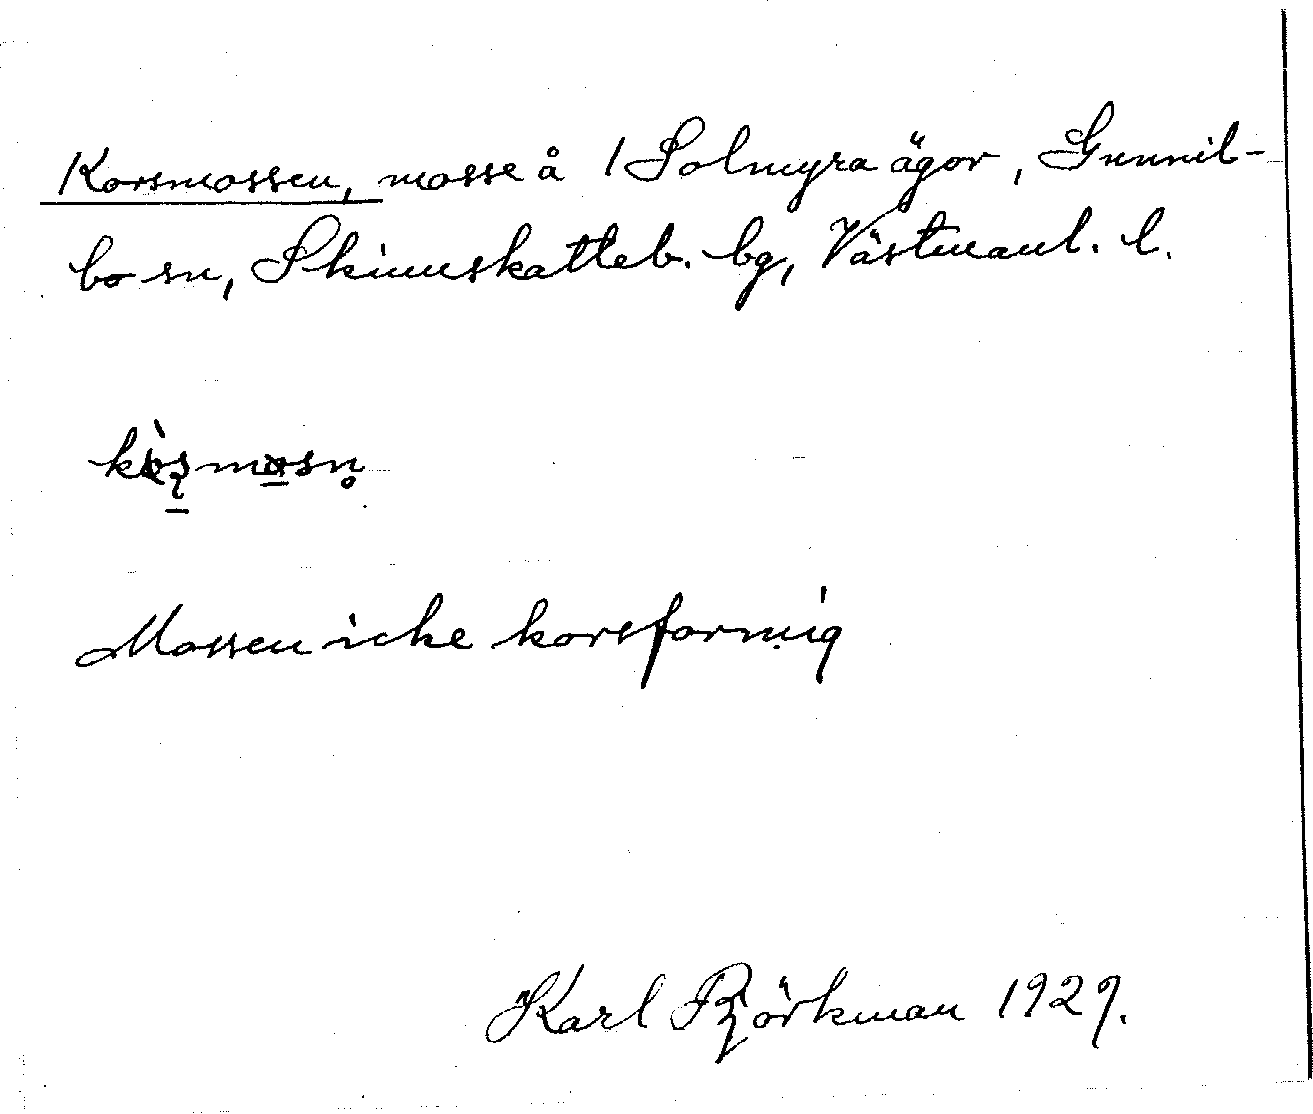 Korsmossen, mosse å /Solmyra ägor, Gunnil-
bo sn, Skinnskatteb. bg, Västmanl. l.
Mossen icke korsformig
Karl Björkman 1929.